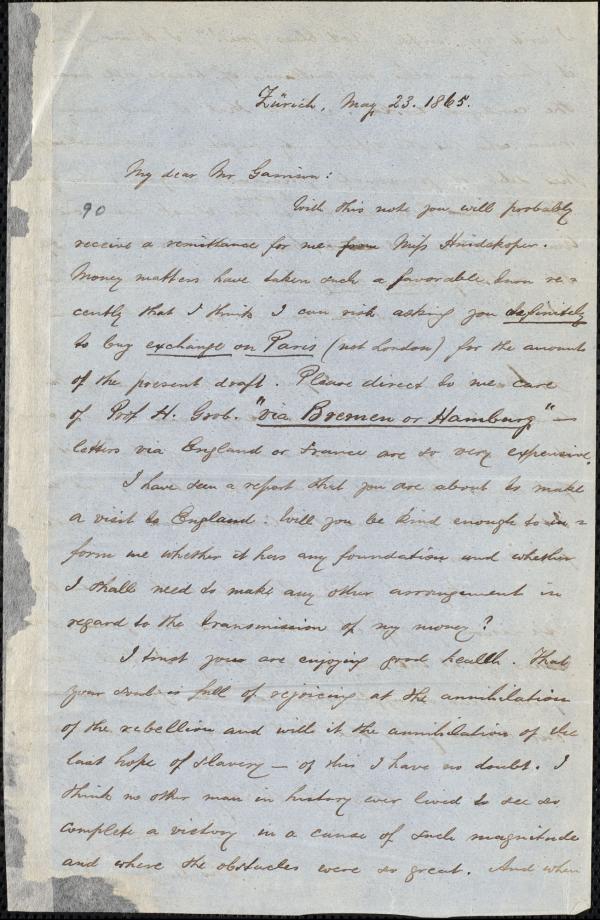 Zürich, May 23. 1865.
My dear Mr Garrison:
90
With this note you will probably
receive a remittance for me from Miss Huidekoper.
Money matters have taken such a favorable turn re=
cently that I think I can risk asking you definitely
to buy exchange on Paris (not London) for the amount
of the present draft. Please direct to me care
of Prof H. Grob. "via Bremen or Hamburg" —
letters via England or France are so very expensive.
I have seen a report that you are about to make
a visit to England. Will you be kind enough to in=
form me whether it has any foundation and whether
I shall need to make any other arrangement in
regard to the transmission of my money?
I trust you are enjoying good health. That
your soul is full of rejoicing at the annihilation
of the rebellion and with it the annihilation of the
last hope of slavery — of this I have no doubt. I
think no other man in history ever lived to see so
complete a victory in a cause of such magnitude
and where the obstacles were so great. And when